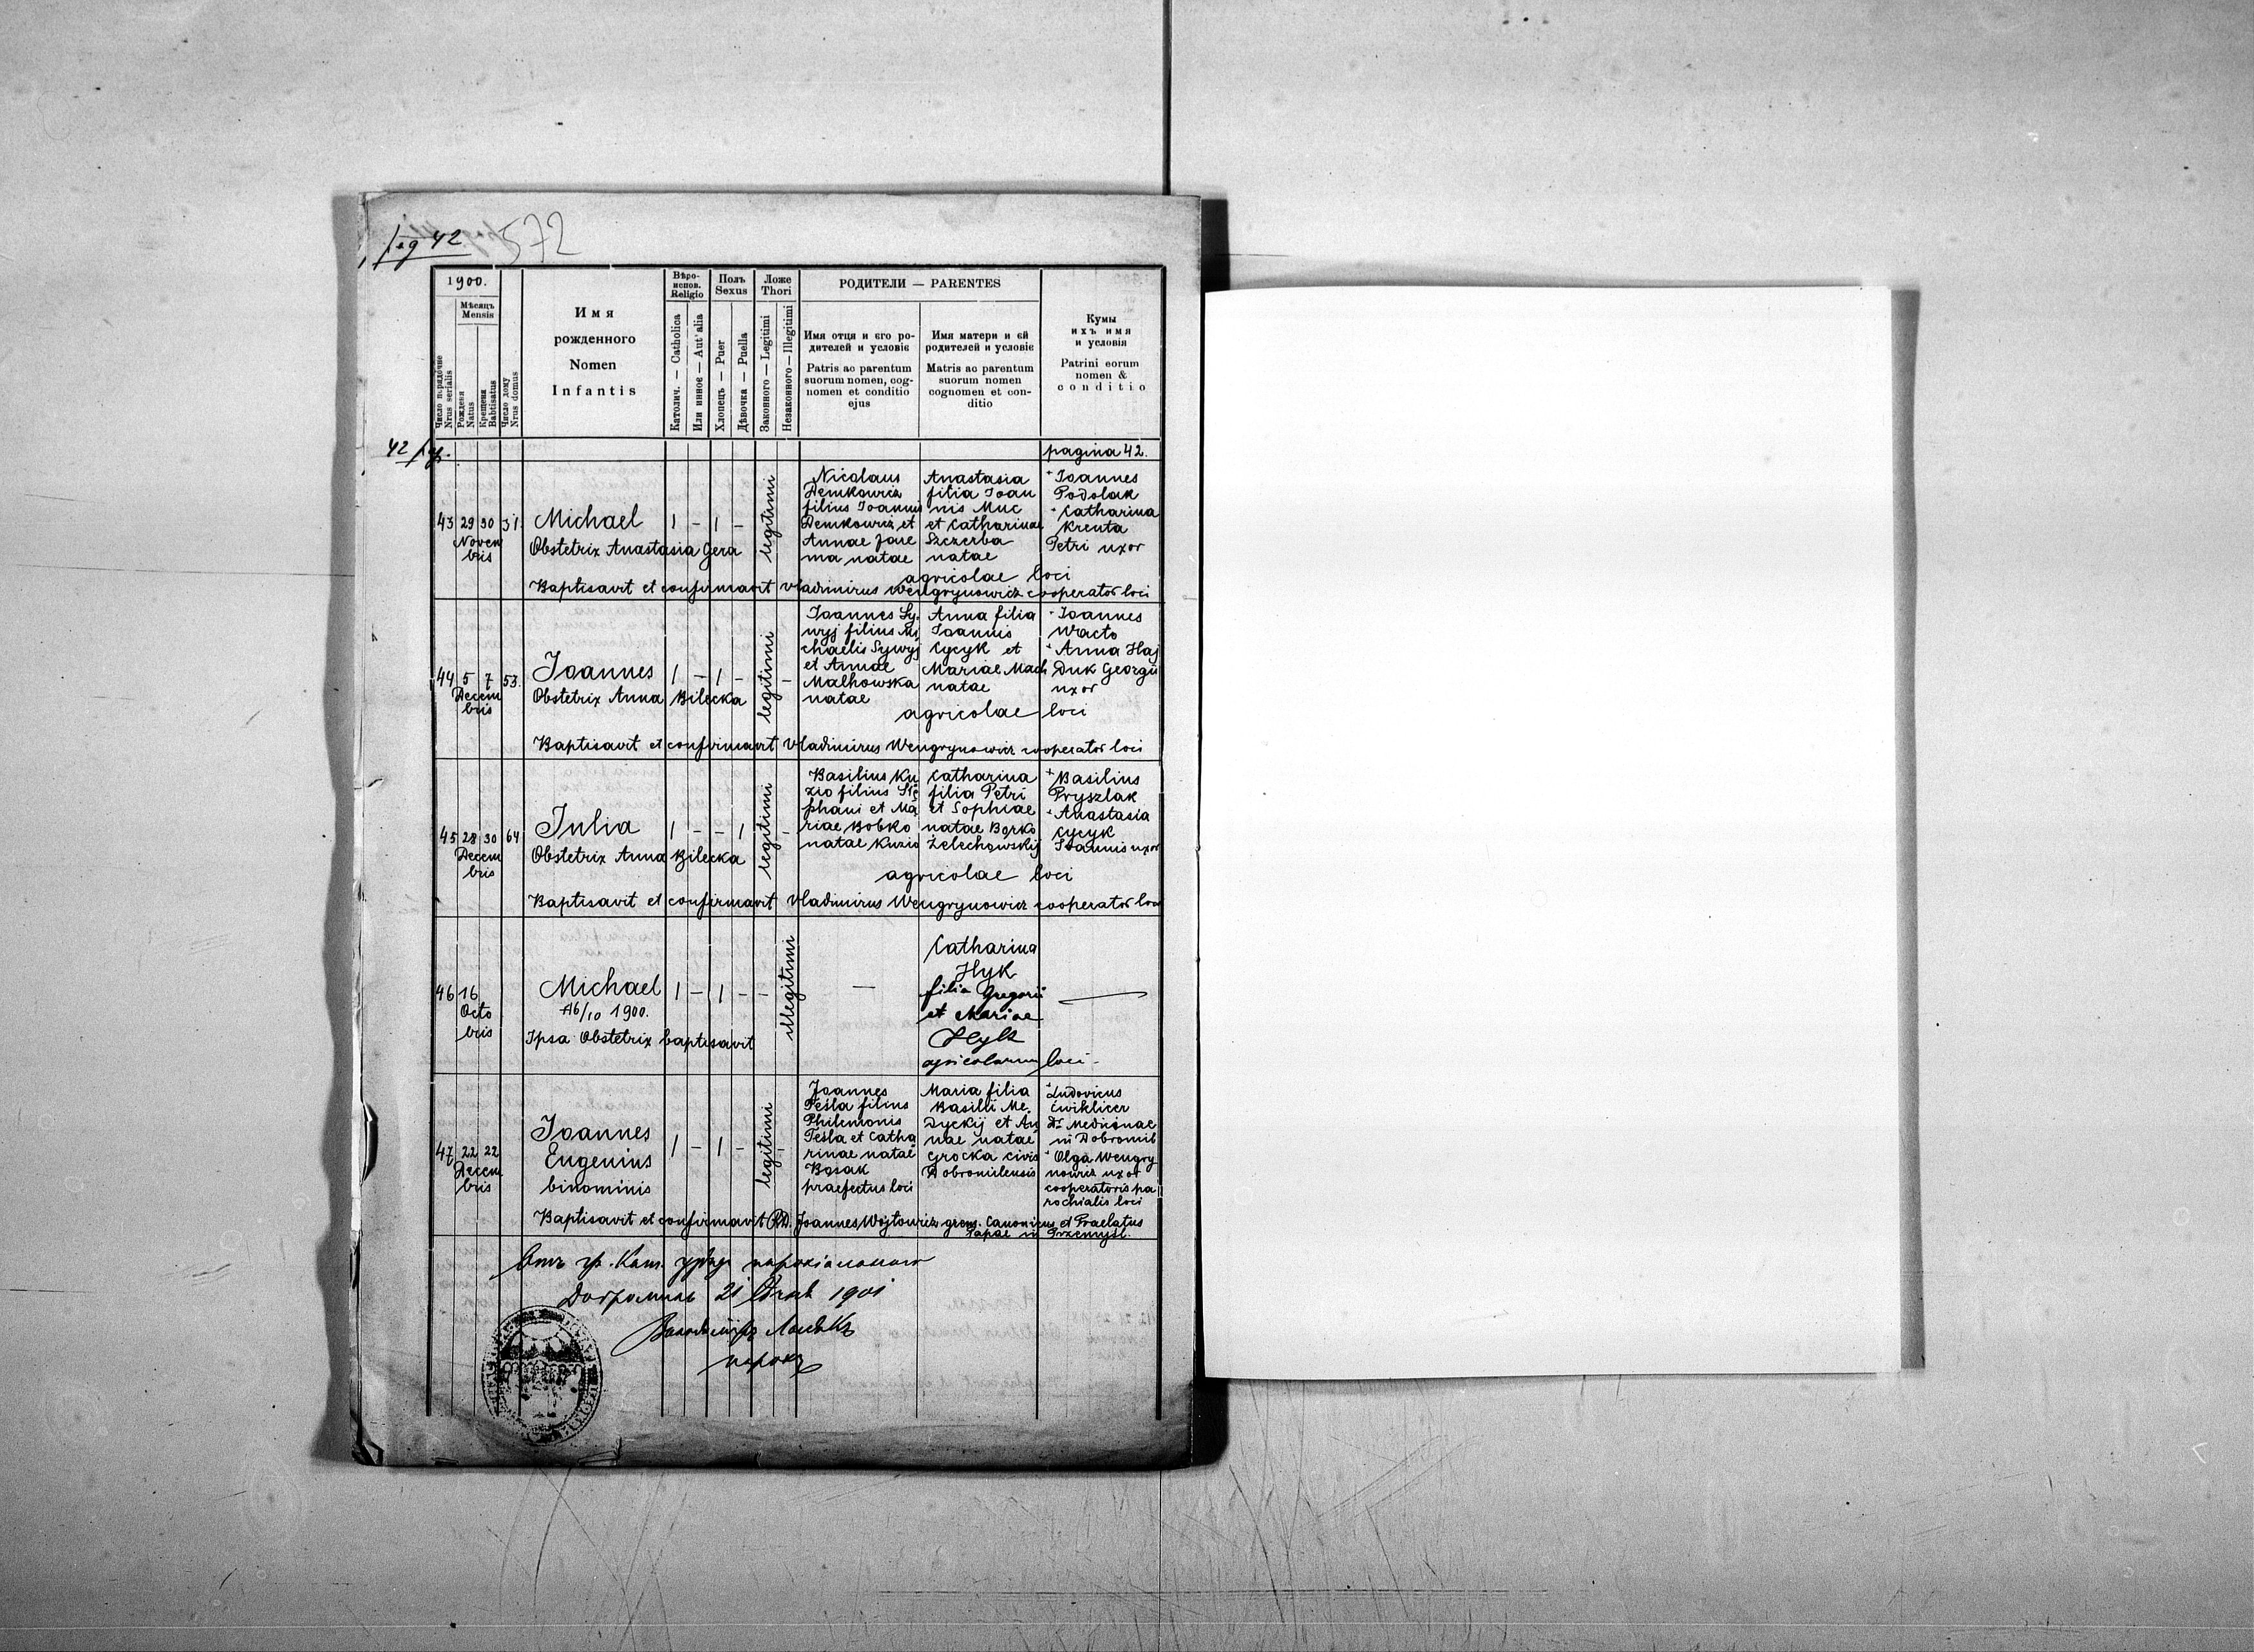 pag 42. 572
1900.
Мѣсяцъ
Mensis
Число порядочне
Nrus serialis
Рождєня
Natus
Крещеня
Babtisatus
Число дому
Nrus domus
Имя
рожденного
Nomen
Infantis
Вѣро-
испов.
Religio
Католич. — Catholica
Или инноє — Aut' alia
Полъ
Sexus
Хлопець — Puer
Дѣвочка — Puella
Ложе
Thori
Законного — Legitimi
Незаконного — Illegitimi
РОДИТЕЛИ — PARENTES
Имя отця и єго ро-
дителей и условіє
Patris ac parentum
suorum nomen, cog-
nomen et conditio
ejus
Имя матери и єй
родителей и условіє
Matris ac parentum
suorum nomen
cognomen et con-
ditio
Кумы
ихъ имя
и условія
Patrini eorum
nomen &
conditio
42 pag.
pagina 42.
43 29 30 51
Novem
bris
Michael 1 – 1 – legitimi
Obstetrix Anastasia Gera
Nicolaus
Demkowicz
filius Joannis
Demkowicz et
Annae Jare
ma natae
Anastasia
filia Joan
nis Muc
et Catharinae
Szczerba
natae
+ Joannes
Podolak
+ Catharina
Krenta
Petri uxor
agricolae loci
Baptisavit et confirmavit Vladimirus Wengrynowicz cooperator loci
44 5 7 53.
Decem
bris
Joannes 1 – 1 – legitimi –
Obstetrix Anna Bilecka
Joannes Sy-
wyj filius Mi
chaelis Sywyj
et Annae
Malhowska
natae
Anna filia
Joannis
Cycyk et
Mariae Mach
natae
+ Joannes
Wacto
+ Anna Haj
Duk Georgii
uxor
agricolae loci
Baptisavit et confirmavit Vladimirus Wengrynowicz cooperator loci
45 28 30 64
Decem
bris
Julia 1 – – 1 legitimi –
Obstetrix Anna Bilecka
Basilius Ku
zio filius Ste
phani et Ma
riae Bobko
natae Kuzio
Catharina
filia Petri
et Sophiae
natae Borko
Żelechowskij
+ Basilius
Pryszlak
+ Anastasia
Cycyk
Joannis uxor
agricolae loci
Baptisavit et confirmavit Vladimirus Wengrynowicz cooperator loci
46 16
Octo
bris
Michael 1 – 1 – – illegitimi
16/10 1900.
Ipsa Obstetrix baptisavit
—
Catharina
Hyk
filia Gregorii
et Mariae
Hyk
agricolarum loci –
47 22 22
Decem
bris
Joannes
Eugenius
binominis
1 – 1 – legitimi –
Joannes
Teśla filius
Philemonis
Teśla et Catha
rinae natae
Bosak
praefectus loci
Maria filia
Basilii Me-
Dyckij et An
nae natae
Grocka civis
Dobromilensis
+ Ludovicus
Ćwiklicer
Dr Medicinae
in Dobromil
+ Olga Wengry
nowicz uxor
cooperatoris pa
rochialis loci
Baptisavit et confirmavit Joannes Wojtowicz grem. Canonicus et Praelatus
Papae in Przemyśl.
Отъ гр. Кат. уряду парохіального
Добромиль 21 1901
парохъ